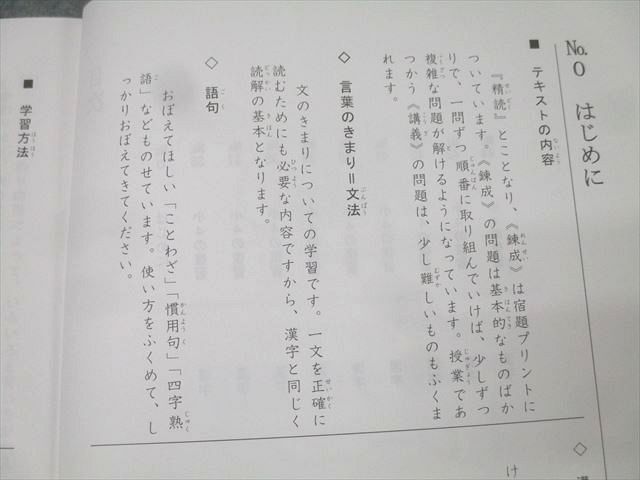 No.0 はじめに
■ テキストの内容
『精読』とことなり、《錬成》は宿題プリントに
ついています。《錬成》の問題は基本的なものばか
りで、一問ずつ順番に取り組んでいけば、少しずつ
複雑な問題が解けるようになっています。授業であ
つかう《講義》の問題は、少し難しいものもふくま
れます。
◇ 言葉のきまり＝文法
文のきまりについての学習です。一文を正確に
読むためにも必要な内容ですから、漢字と同じく
読解の基本となります。
◇ 語句
おぼえてほしい「ことわざ」「慣用句」「四字熟
語」などものせています。使い方をふくめて、し
っかりおぼえてきてください。
■ 学習方法
◇
け